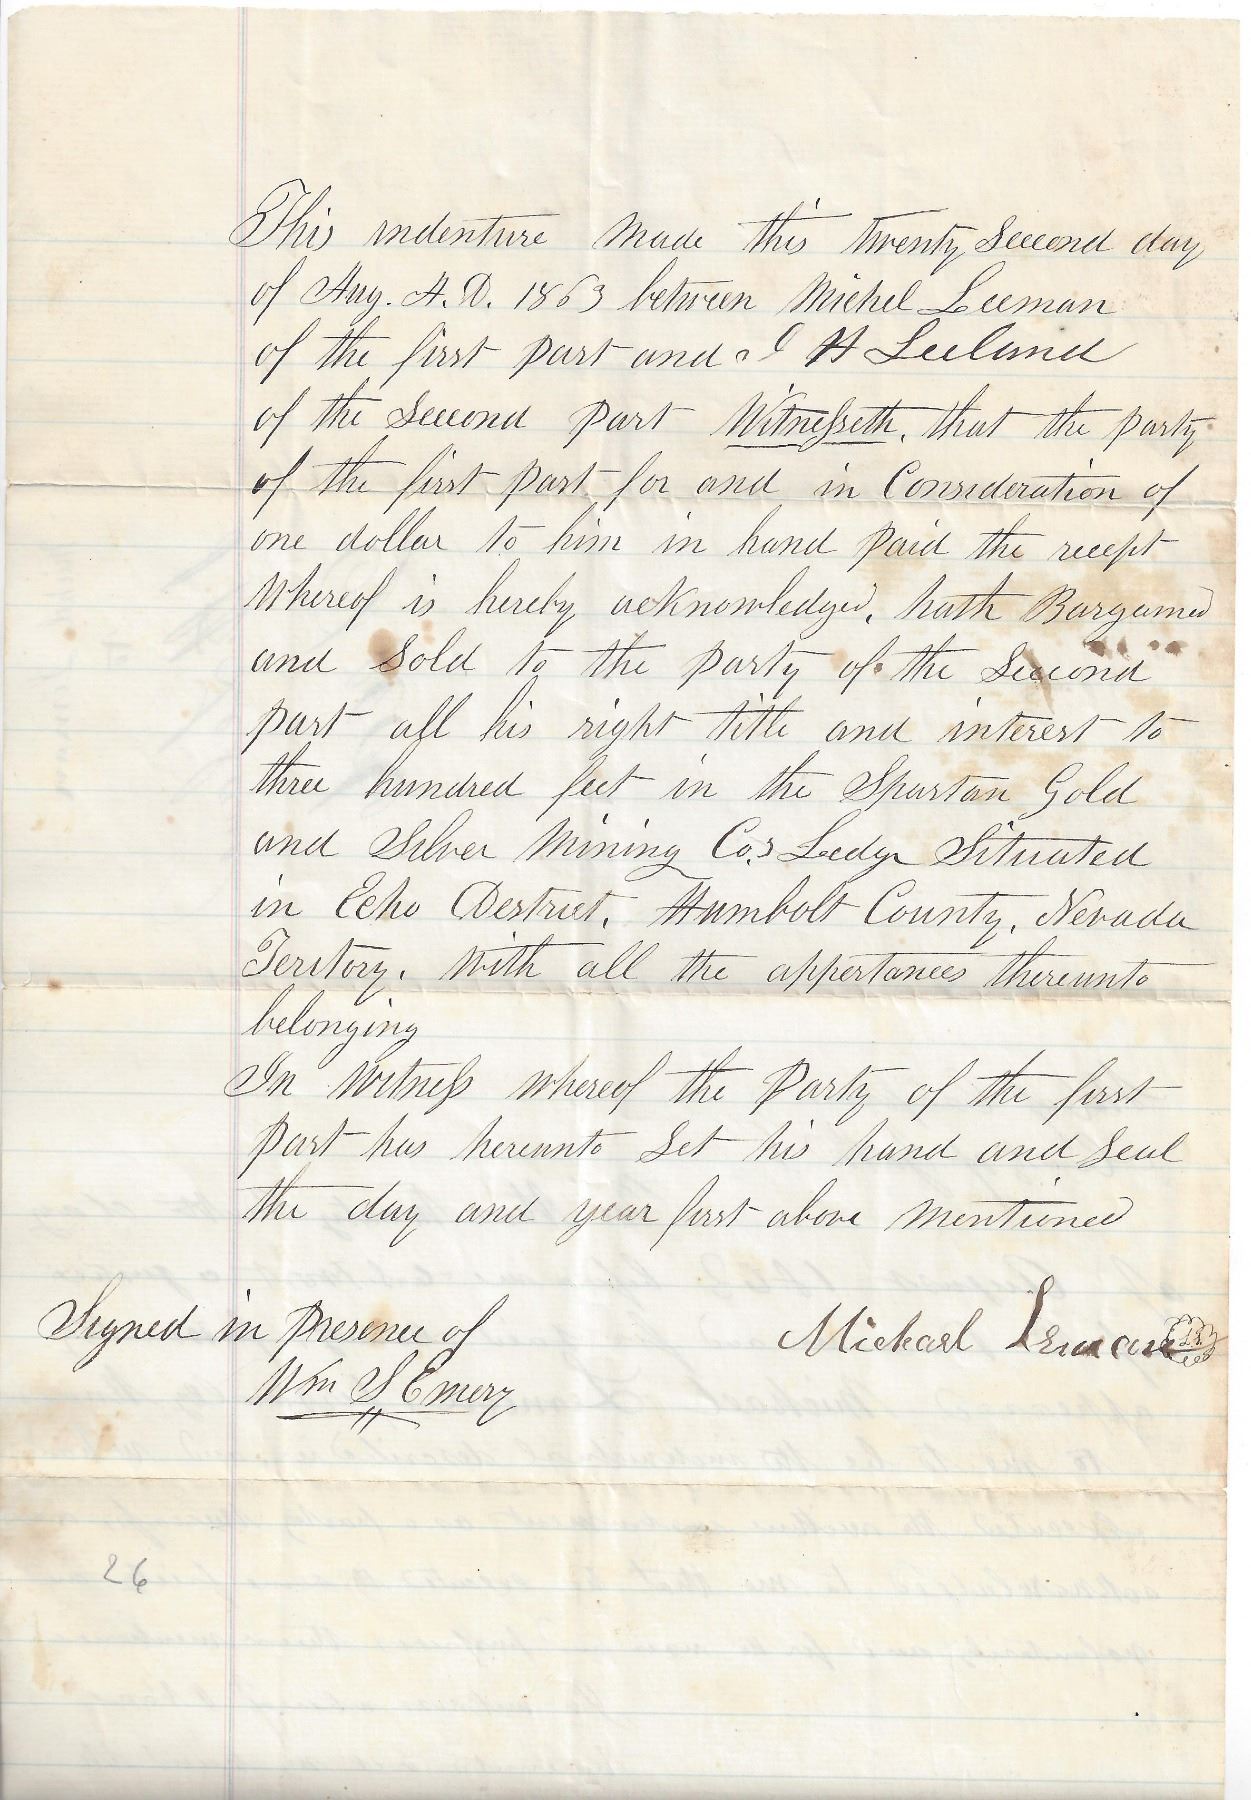 This indenture made this twenty Second day
of Aug. A. D. 1863 between Michel Leeman
of the first part and J H Leeland
of the Second part Witnesseth, that the party
of the first part for and in Consideration of
one dollar to him in hand paid the recept
whereof is hereby acknowledged, hath Bargained
and Sold to the party of the Second
part all his right title and interest to
three hundred feet in the Spartan Gold
and Silver Mining Co.s Ledge Situated
in Echo Destrict, Humbolt County, Nevada
Teritory, With all the appertances thereunto
belonging
In Witness whereof the Party of the first
part has hereunto Set his hand and Seal
the day and year first above mentioned
Signed in presence of
Michael Leman L.S.
Wm S Emery
26